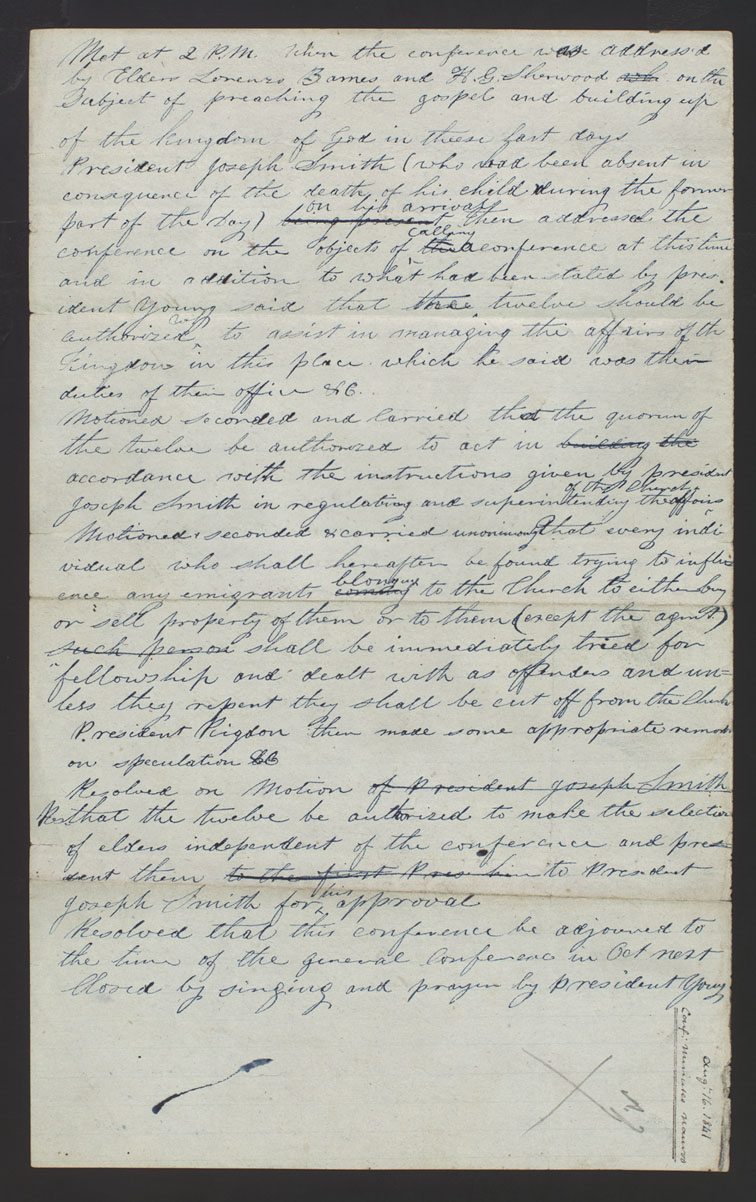 Met at 2 P.M. When the conference was address'd
by Elders Lorenzo Barnes and H. G. Sherwood who on the
Subject of preaching the gospel and building up
of the kingdom of God in these last days
President Joseph Smith (who had been absent in
consequence of the death of his child during the former
on his arrival
part of the Day) being present then addressed the
calling
conference on the objects of the a conference at this time
and in addition to what had been stated by pres-
ident Young said that the twelve should be
authorized to assist in managing the affairs of th
Kingdom in this place which he said was the
duties of their office &C.
Motioned seconded and carried that the quorum of
the twelve be authorized to act in building the
accordance with the instructions given by president
of the Church
Joseph Smith in regulating and superintending the affairs
Motioned, seconded & carried unanimously that every indi
vidual who shall hereafter be found trying to influ
blonging
ence any emigrants coming to the Church to either buy
or sell property of them or to them (except the agent)
such person shall be immediately tried for
fellowship and dealt with as offenders and un=
less they repent they shall be cut off from the Church
President Rigdon then made some appropriate remarks
on speculation &C
Resolved on Motion of President Joseph Smith
Res that the twelve be authorized to make the selection
of elders independent of the conference and pre-
sent them to the first Presi to President
his
Joseph Smith for approval
Resolved that this conference be adjourned to
the time of the general Conference in Oct next
Closed by singing and prayer by President Young
Aug. 16. 1841
Conf. Minutes Nauvoo